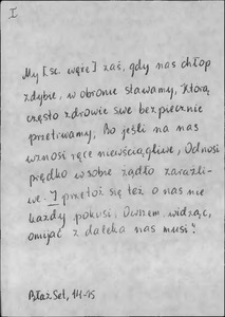 I
My [sc. węże] zaś, gdy nas chłop
zdybie, w obronie stawamy, Którą
często zdrowie swe bezpiecznie
przetrwamy, Bo jeśli na nas
wznosi ręce niewściągliwe, Odnosi
prędko w sobie żądło zaraźli-
we. I przetoż się też o nas nie
każdy pokusi, Owszem, widząc,
omijać z daleka nas musi.
BłażSet, 14-15